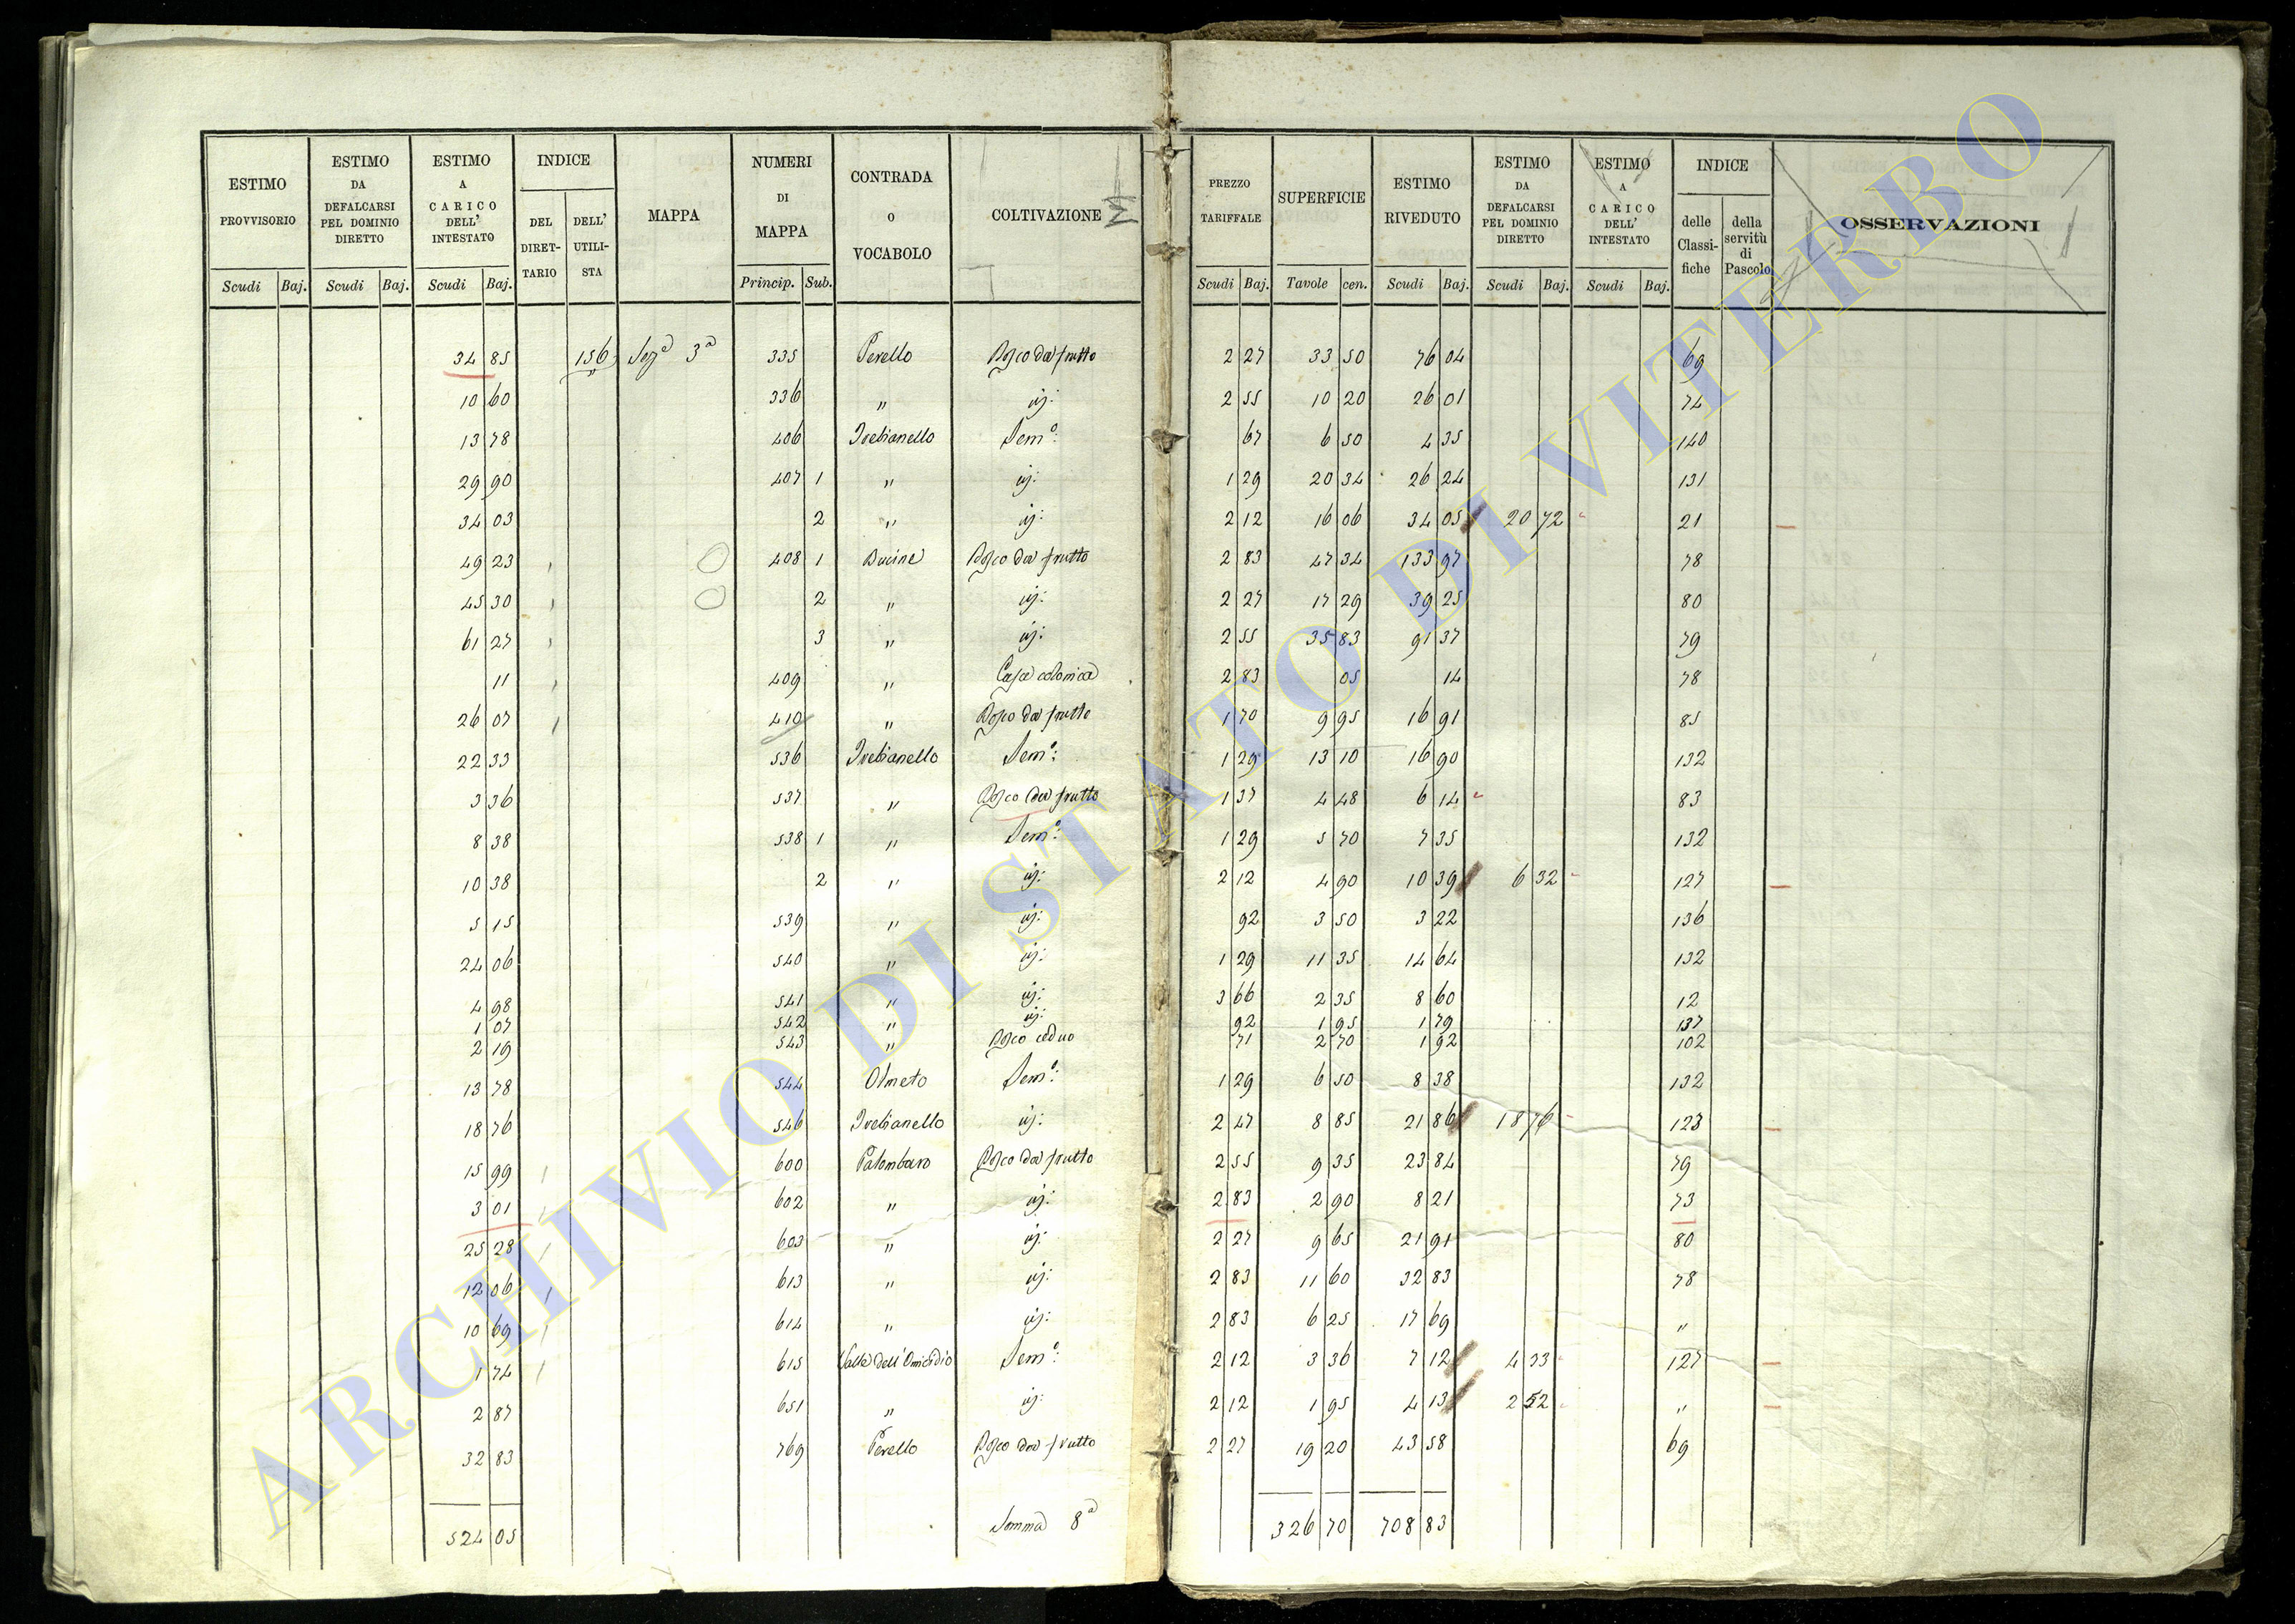 ESTIMO PROVVISORIO | ESTIMO DA DEFALCARSI PEL DOMINIO DIRETTO | ESTIMO A CARICO DELL' INTESTATO | INDICE | MAPPA | NUMERI DI MAPPA | CONTRADA O VOCABOLO | COLTIVAZIONE | PREZZO TARIFFALE | SUPERFICIE | ESTIMO RIVEDUTO | ESTIMO DA DEFALCARSI PEL DOMINIO DIRETTO | ESTIMO A CARICO DELL' INTESTATO | INDICE | OSSERVAZIONI
DEL DIRET-TARIO | DELL' UTILI-STA | delle Classi-fiche | della servitù di Pascolo
Scudi Baj. | Scudi Baj. | Scudi Baj. | Princip. Sub. | Scudi Baj. | Tavole cen. | Scudi Baj. | Scudi Baj. | Scudi Baj.
34 85 156 Sezª 3ª 335 Perello Bosco da frutto 2 27 33 50 76 04 69
10 60 336 " id: 2 55 10 20 26 01 74
13 78 406 Trebianello Semº: 67 6 50 4 35 140
29 90 407 1 " id: 1 29 20 34 26 24 131
34 03 2 " id: 2 12 16 06 34 05 20 72 21
49 23 408 1 Bucine Bosco da frutto 2 83 47 34 133 97 78
45 30 2 " id: 2 27 17 29 39 25 80
61 27 3 " id: 2 55 35 83 91 37 79
11 409 " Casa colonica 2 83 05 14 78
26 07 410 " Bosco da frutto 1 70 9 95 16 91 85
22 33 536 Trebianello Semº: 1 29 13 10 16 90 132
3 36 537 " Bosco da frutto 1 37 4 48 6 14 83
8 38 538 1 " Semº: 1 29 5 70 7 35 132
10 38 2 " id: 2 12 4 90 10 39 6 32 127
5 15 539 " id: 92 3 50 3 22 136
24 06 540 " id: 1 29 11 35 14 64 132
4 98 541 " id: 3 66 2 35 8 60 12
1 07 542 " id: 92 1 95 1 79 137
2 19 543 " Bosco ceduo 71 2 70 1 92 102
13 78 544 Olmeto Semº: 1 29 6 50 8 38 132
18 76 546 Trebianello id: 2 47 8 85 21 86 18 76 123
15 99 600 Palombaro Bosco da frutto 2 55 9 35 23 84 79
3 01 602 " id: 2 83 2 90 8 21 73
25 28 603 " id: 2 27 9 65 21 91 80
12 06 613 " id: 2 83 11 60 32 83 78
10 69 614 " id: 2 83 6 25 17 69 "
1 74 615 Valle dell'Omicidio Semº: 2 12 3 36 7 12 4 33 127
2 87 651 " id: 2 12 1 95 4 13 2 52 "
32 83 769 Perello Bosco da frutto 2 27 19 20 43 58 69
524 05 Somma 8ª 326 70 708 83
ARCHIVIO DI STATO DI VITERBO